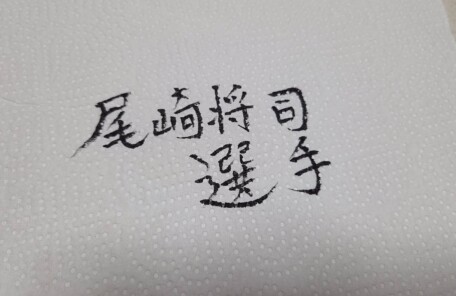 尾崎将司
選手